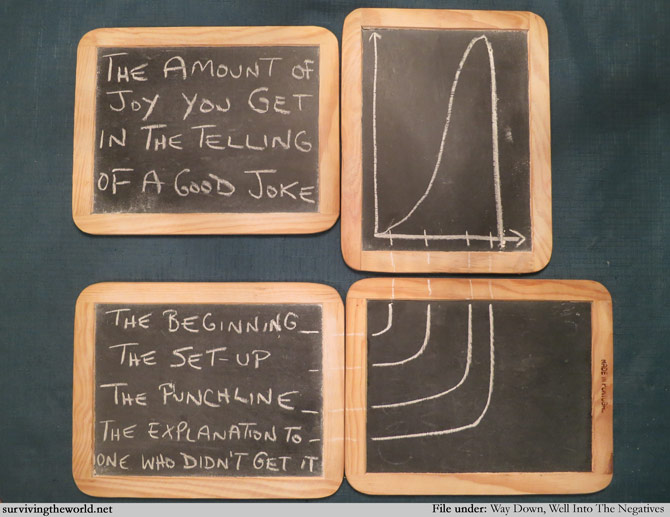 THE AMOUNT OF
JOY YOU GET
IN THE TELLING
OF A GOOD JOKE
THE BEGINNING
THE SET-UP
THE PUNCHLINE
THE EXPLANATION TO
ONE WHO DIDN'T GET IT
MADE IN PORTUGAL
survivingtheworld.net
File under: Way Down, Well Into The Negatives